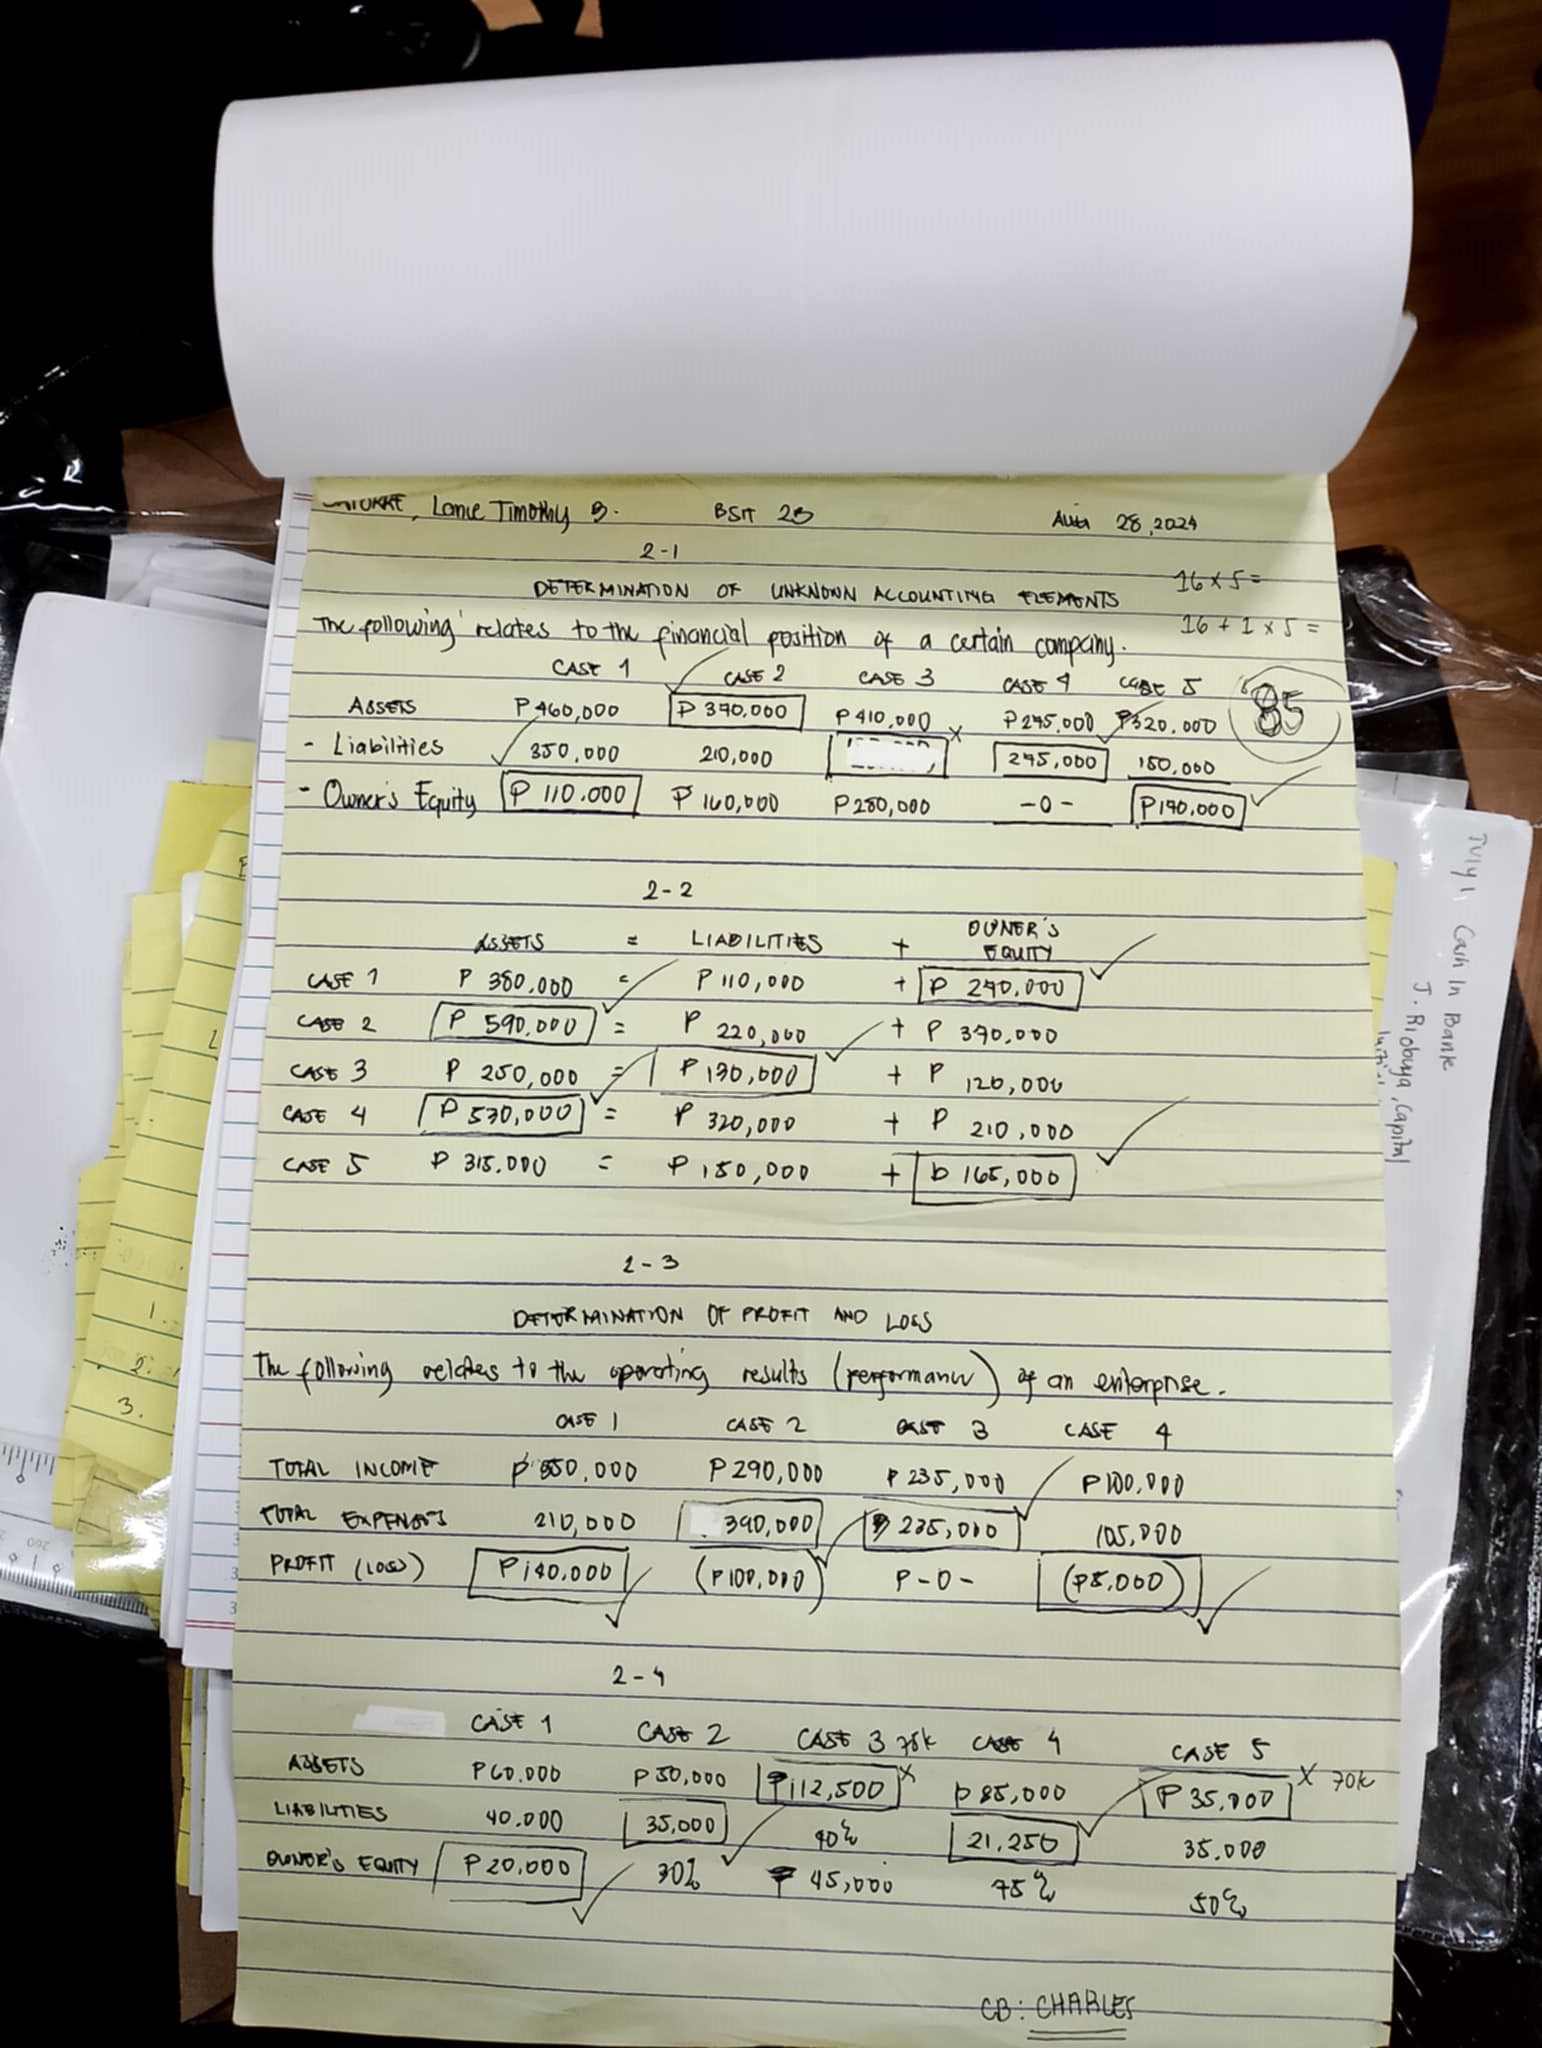 Lance Timothy B. BSIT 2B Aug 28, 2024
2-1
DETERMINATION OF UNKNOWN ACCOUNTING ELEMENTS 16 x 5 =
The following relates to the financial position of a certain company. 16 + 1 x 5 =
CASE 1 CASE 2 CASE 3 CASE 4 CASE 5
85
ASSETS ₱460,000 ₱370,000 ₱410,000 x ₱245,000 ₱320,000
- Liabilities 350,000 210,000 245,000 150,000
- Owner's Equity ₱110,000 ₱160,000 ₱280,000 -0- ₱170,000
2-2
ASSETS = LIABILITIES + OWNER'S EQUITY
CASE 1 ₱ 350,000 = ₱110,000 + ₱ 240,000
CASE 2 ₱ 590,000 = ₱ 220,000 + ₱ 370,000
CASE 3 ₱ 250,000 = ₱ 130,000 + ₱ 120,000
CASE 4 ₱ 530,000 = ₱ 320,000 + ₱ 210,000
CASE 5 ₱ 315,000 = ₱ 150,000 + ₱ 165,000
2-3
DETERMINATION OF PROFIT AND LOSS
The following relates to the operating results (performance) of an enterprise.
CASE 1 CASE 2 CASE 3 CASE 4
TOTAL INCOME ₱350,000 ₱290,000 ₱235,000 ₱100,000
TOTAL EXPENSES 210,000 390,000 ₱235,000 105,000
PROFIT (LOSS) ₱140,000 (₱100,000) ₱-0- (₱5,000)
2-4
CASE 1 CASE 2 CASE 3 75k CASE 4 CASE 5
ASSETS ₱60,000 ₱50,000 ₱112,500 x ₱85,000 ₱35,000 x 70k
LIABILITIES 40,000 35,000 40% 21,250 35,000
OWNER'S EQUITY ₱20,000 30% ₱45,000 75% 50%
CB: CHARLES
July 1 Cash In Bank
J. Riobuya, Capital
1.
2.
3.